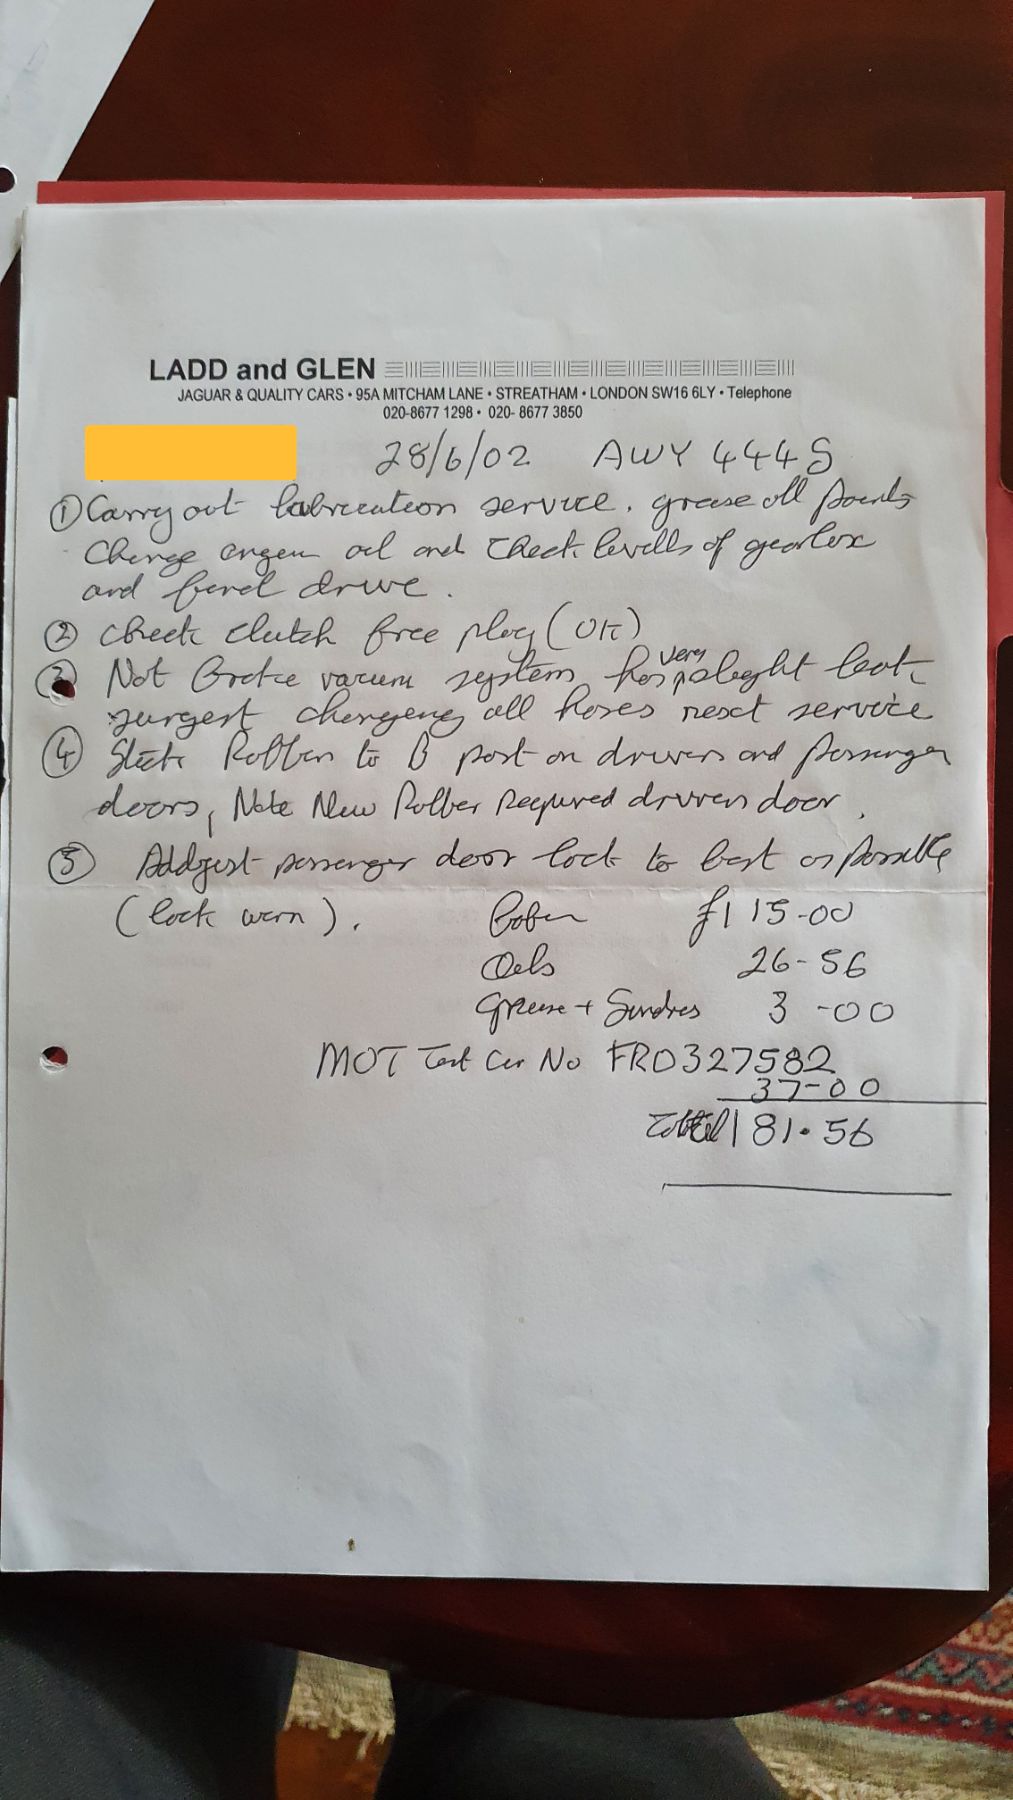 LADD and GLEN
JAGUAR & QUALITY CARS • 95A MITCHAM LANE • STREATHAM • LONDON SW16 6LY • Telephone
020-8677 1298 • 020- 8677 3850
28/6/02 AWY 444S
① Carry out lubrication service. grease all points
Change engen oil and Check levells of gearbox
and finel drive.
② Check Clutch free play (OK)
③ Not Brake vacum system has very slight leak
surgest changeing all hoses next service
④ Stick Rubber to B post on drivers and passenger
doors, Note New Rubber Required drivers door.
⑤ Addjust passenger door lock to best as possible
(lock worn). Labour £115-00
Oils 26-56
Grease + Sundres 3-00
MOT Test Cer No FR0327582
37-00
Total 181.56